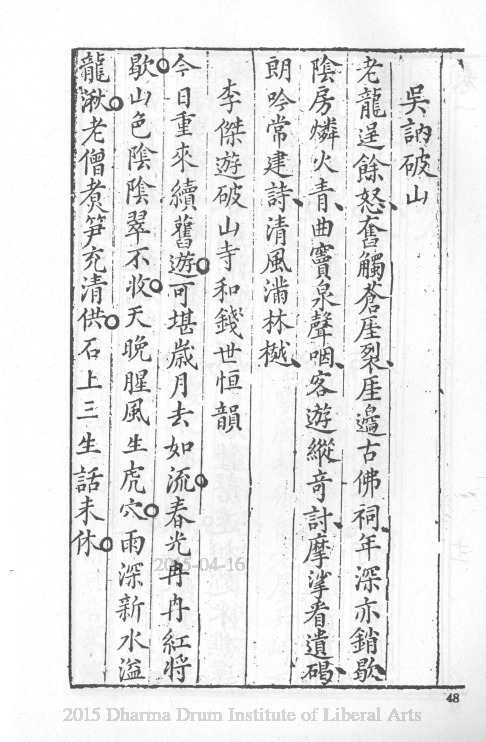 吳訥破山
老龍逞餘怒奮觸蒼厓裂厓邉古佛祠年深亦銷歇
陰房燐火青曲竇泉聲咽客遊縱竒討摩挲看遺碣
朗吟常建詩清風滿林樾
李傑遊破山寺和錢世恒韻
今日重來續舊遊可堪歲月去如流春光冉冉紅將
歇山色陰陰翠不收天晚腥風生虎穴雨深新水溢
龍湫老僧煑笋充清供石上三生話未休
2015-04-16
48
2015 Dharma Drum Institute of Liberal Arts